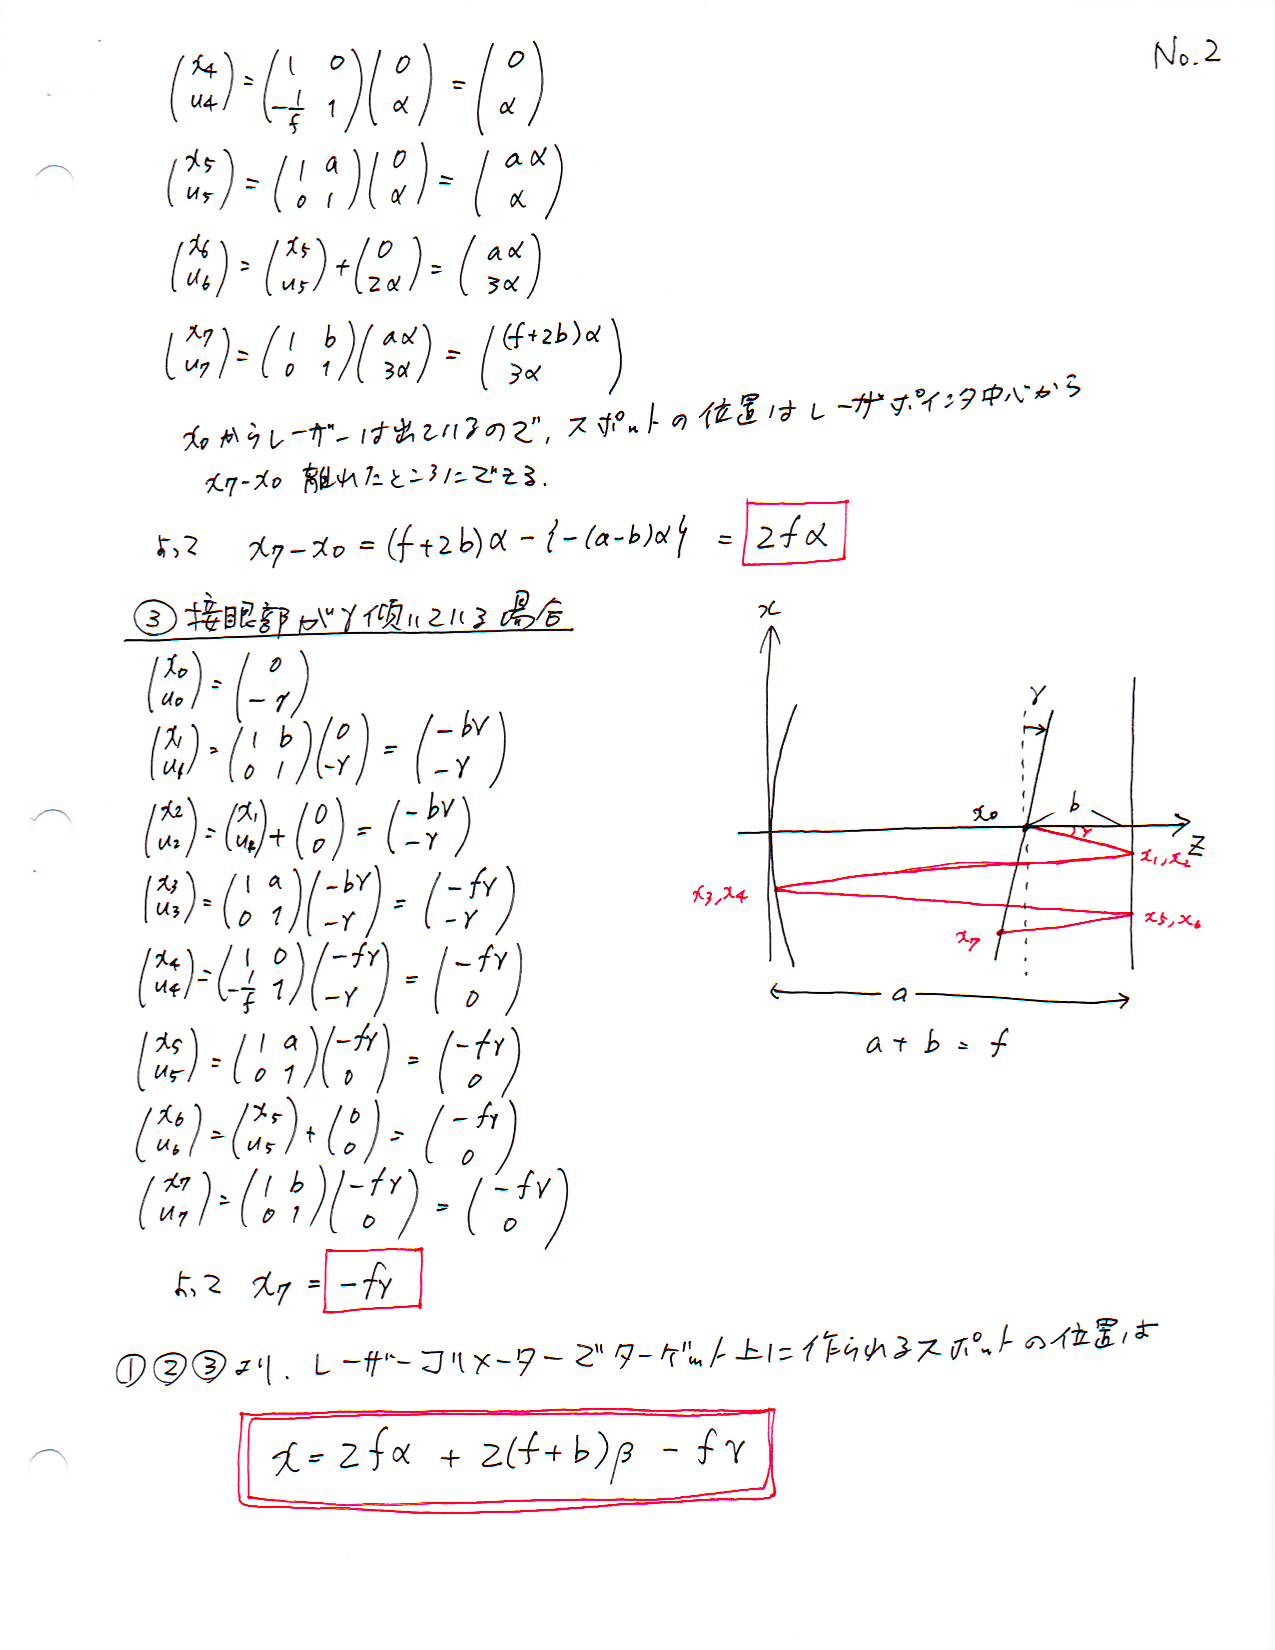 No.2
(x4 u4) = (1 0 -1/f 1)(0 α) = (0 α)
(x5 u5) = (1 a 0 1)(0 α) = (aα α)
(x6 u6) = (x5 u5) + (0 2α) = (aα 3α)
(x7 u7) = (1 b 0 1)(aα 3α) = ((f+2b)α 3α)
x0からレーザーは出ているので、スポットの位置はレーザポインタ中心から
x7-x0 離れたところにできる.
よって x7-x0 = (f+2b)α - {-(a-b)α} = 2fα
③ 接眼部がγ傾いている場合
(x0 u0) = (0 -γ)
(x1 u1) = (1 b 0 1)(0 -γ) = (-bγ -γ)
(x2 u2) = (x1 u1) + (0 0) = (-bγ -γ)
(x3 u3) = (1 a 0 1)(-bγ -γ) = (-fγ -γ)
(x4 u4) = (1 0 -1/f 1)(-fγ -γ) = (-fγ 0)
(x5 u5) = (1 a 0 1)(-fγ 0) = (-fγ 0)
(x6 u6) = (x5 u5) + (0 0) = (-fγ 0)
(x7 u7) = (1 b 0 1)(-fγ 0) = (-fγ 0)
よって x7 = -fγ
x
γ
x0
b
γ
z
x1,x2
x3,x4
x5,x6
x7
a
a + b = f
①②③より. レーザーコリメーターでターゲット上に作られるスポットの位置は
x = 2fα + 2(f+b)β - fγ